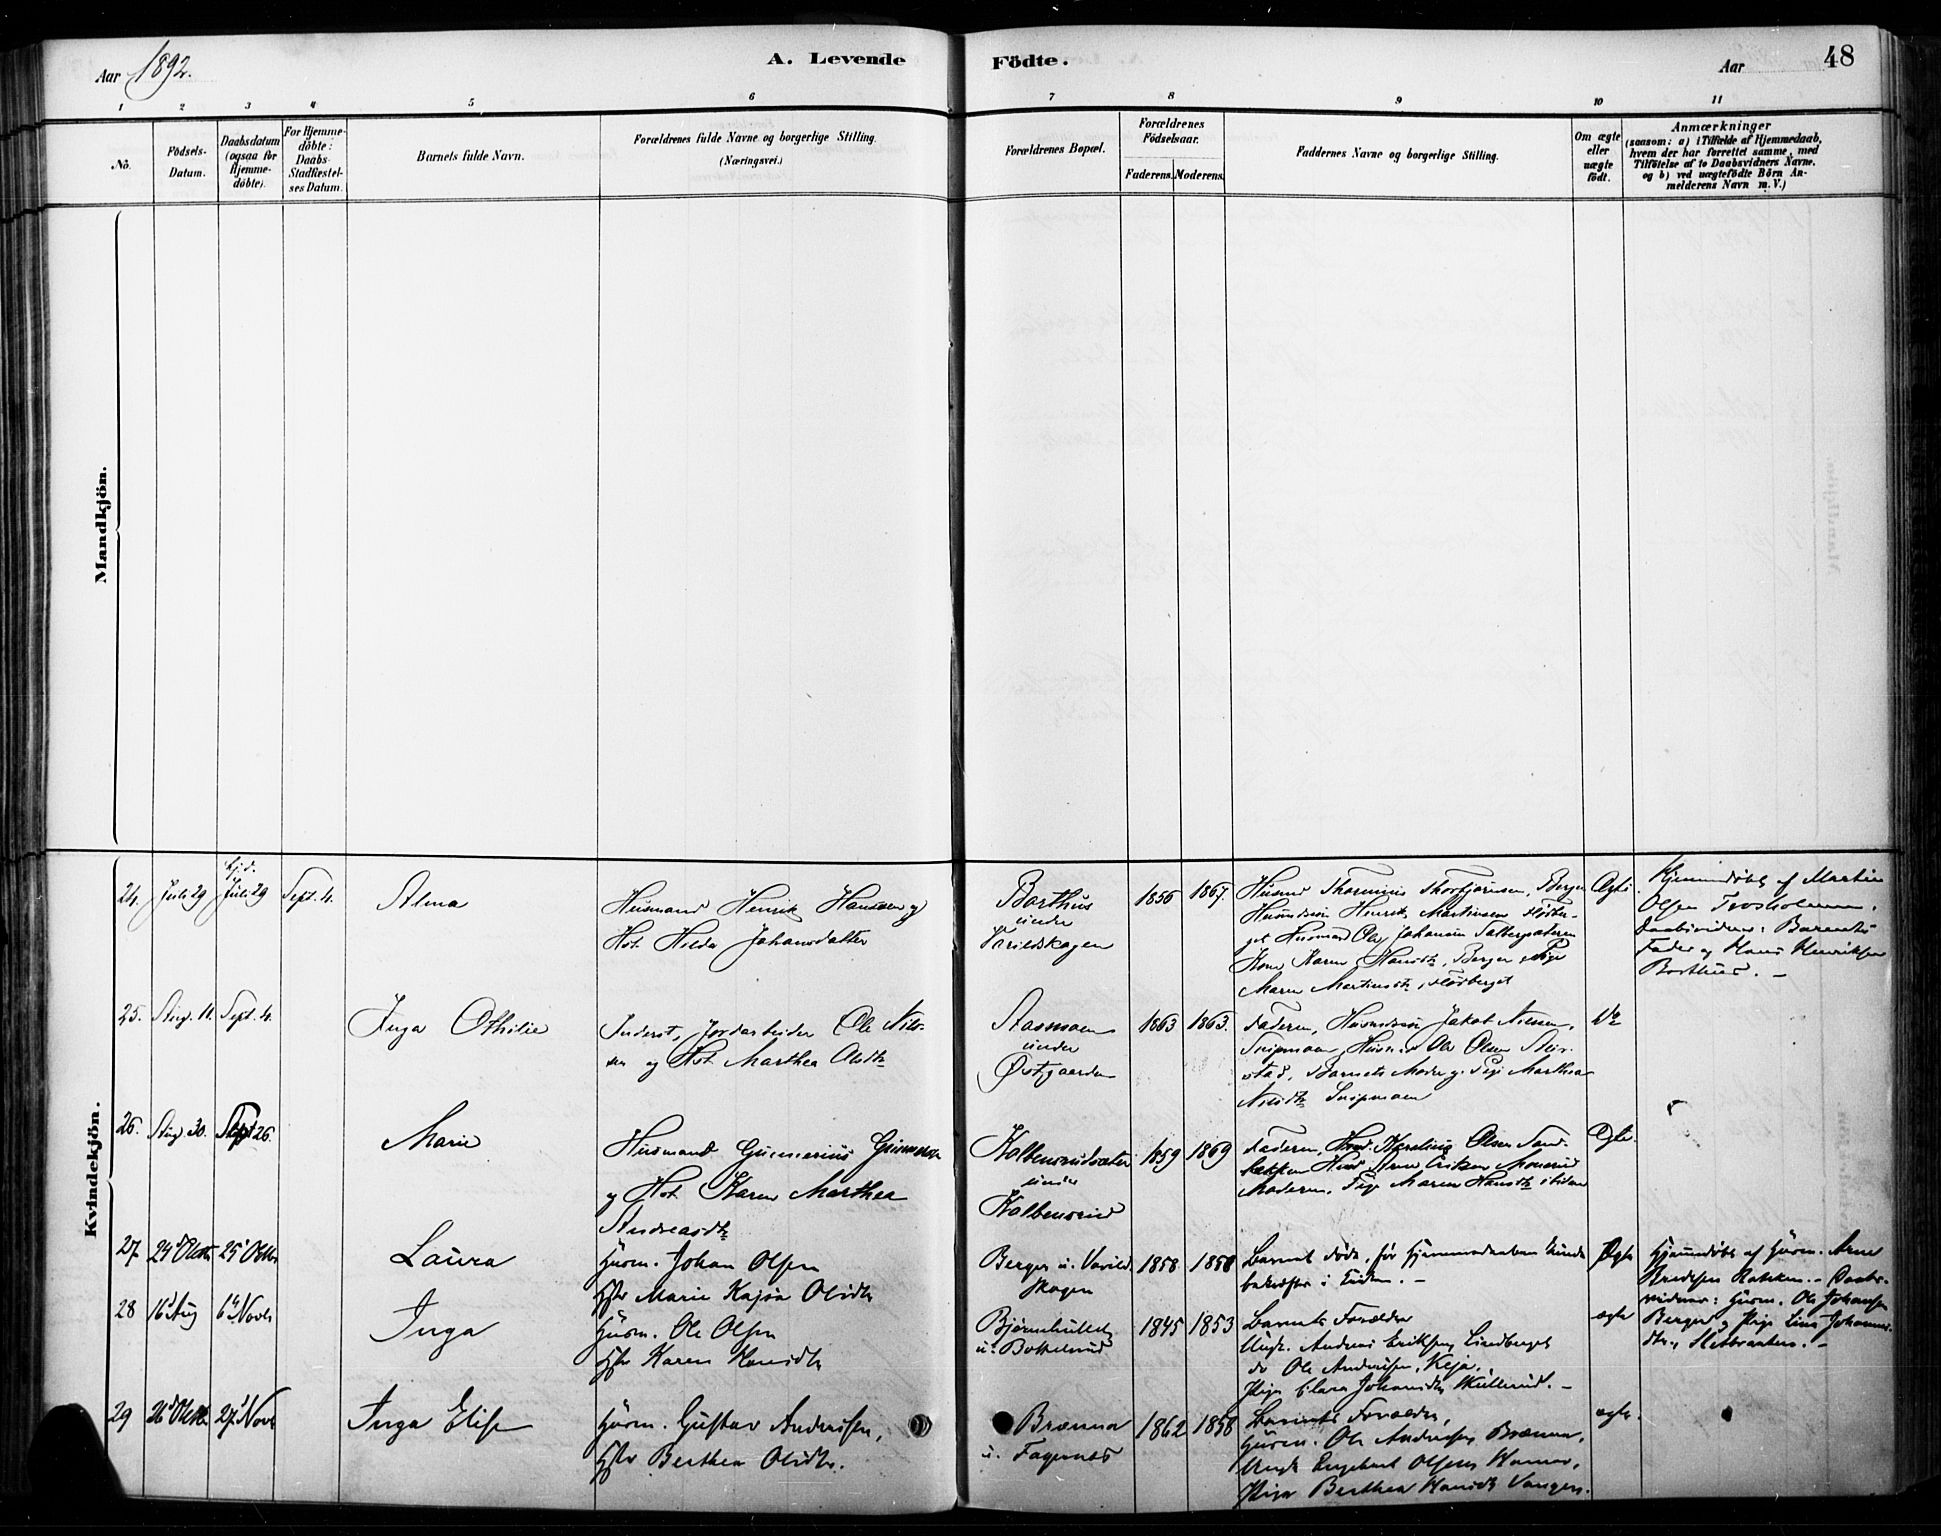 Aar 1892.
A. Levende
Födte.
Aar
48
1
2
3
4
5
6
7
8
9
10
11
No.
Födsels-
Datum.
Daabsdatum
(ogsaa for
Hjemme-
döbte).
For Hjemme-
döbte:
Daabs-
Stadfæstel-
ses Datum.
Barnets fulde Navn.
Forældrenes fulde Navne og borgerlige Stilling.
(Næringsvei.)
Forældrenes Bopæl.
Forældrenes
Födselsaar.
Faderens.
Moderens.
Faddernes Navne og borgerlige Stilling.
Om ægte
eller
uægte
födt.
Anmærkninger
(saasom: a) i Tilfælde af Hjemmedaab,
hvem der har forrettet samme, med
Tilföielse af to Daabsvidners Navne,
og b) ved uægtefödte Börn An-
melderens Navn m. V.)
Mandkjön.
Kvindekjön.
24.
Juli 29
hj.d.
Juli 29
Sept. 4.
Alma
Husmand Henrik Hansen og
Hst. Hilda Johansdatter
Borthus
under
Varildskogen
1856
1867.
Husmd Thorinius Thorbjørnsen, Berger
Husmdssøn Henrik Martinsen Fløtber-
get Husmand Ole Johansen
Kone Karen Hansdtr, Berger, Pige
Maren Martinsdtr, Fløtberget
Ægte.
Hjemmedøbt af Martin
Olsen
Daabsvidner: Barnets
Fader og Hans Henriksen
Borthus. –
25.
Aug. 11.
Sept. 4.
Inga Othilie
Inderst, Jordarbeider Ole Nils-
sen og Hst. Marthea Olsdtr
Aasmoen
under
Østgaarden
1863
1863.
Faderen, Husmdssøn Jakob Nilsen,
Snipmoen, Husmd Ole Olsen
Barnets Moder og Pige Marthea
Nilsdtr Snipmoen
Do
26.
Aug. 30.
Sept 26.
Marie
Husmand Gunnerius Gunnersen
og Hst. Karen Marthea
Andreasdtr
Kolbensrudsæter
under
Kolbensrud
1859
1869
Faderen, Husmd. Olsen Sand-
bakken Husmd Arne Eriksen
Moderen, Pige Maren Hansdtr ibidem
Ægte.
27
24d Oktbr
25' Oktbr
Laura
Husm. Johan Olsen
Hstr Marie Kajsa Olsdtr
Berger u. Varild-
skogen
1858
1858
Barnet døde, før Hjemmedaaben kunde
bekræftes i Kirken. –
Ægte
Hjemmedøbt af Husm. Arne
Knudsen Bakken. – Daabs-
vidner: Husm. Ole Johansen
Berger og Pige Lina Johannes-
dtr., Sletbraaten. –
28
16d Aug
6d Novb
Inga
Husm. Ole Olsen
Hstr Karen Hansdtr
Bjørnehullet
u. Bottelsrud
1845
1853
Barnets Forældre
Ungk. Andreas Eriksen, Lindberget
do Ole Andersen, Keja,
Pige Clara Johansdtr Kullerud. –
ægte
29
26d Oktb
27d Novb
Inga Elise
Husm. Gustav Anderssen,
Hstr Berthea Olsdtr.
Brænna
u. Fagernæs
1862
1858
Barnets Forældre,
Husm. Ole Andersen Brænna,
Ungk Engebret Olsen,
Pige Berthea Hansdtr Vangen.
ægte.